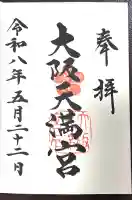 奉拝
大阪天満宮
令和八年五月二十二日